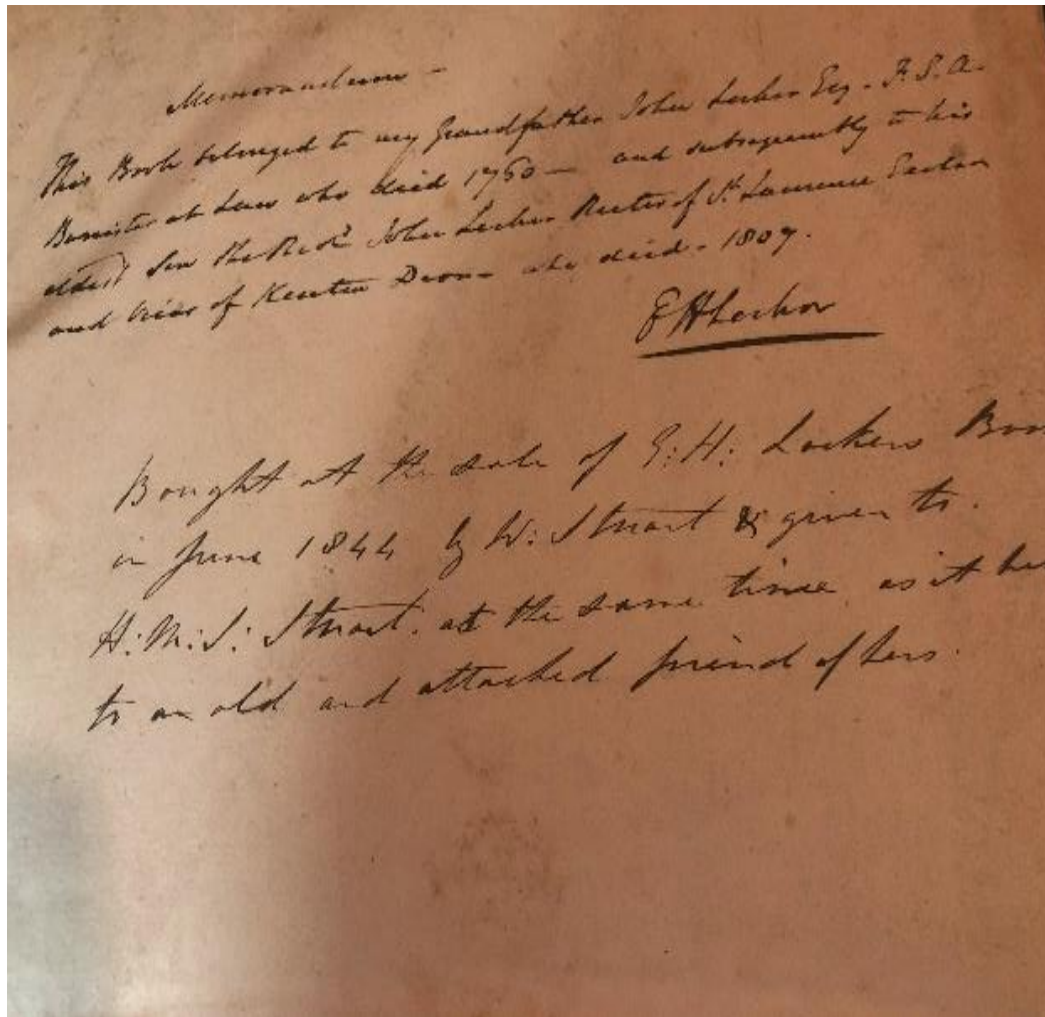 Memorandum -
This Book belonged to my Grandfather John Locker Esq. F. S. A.
Barrister at Law who died 1760 — and subsequently to his
eldest Son the Revd John Locker Rector of St Laurence
and Vicar of Kenton Devon - who died - 1807.
E H Locker
Bought at the sale of E: H: Lockers
in June 1844 by W: Stuart & given to
H: M: S: Stuart. at the same time as it
to an old and attached friend of hers.